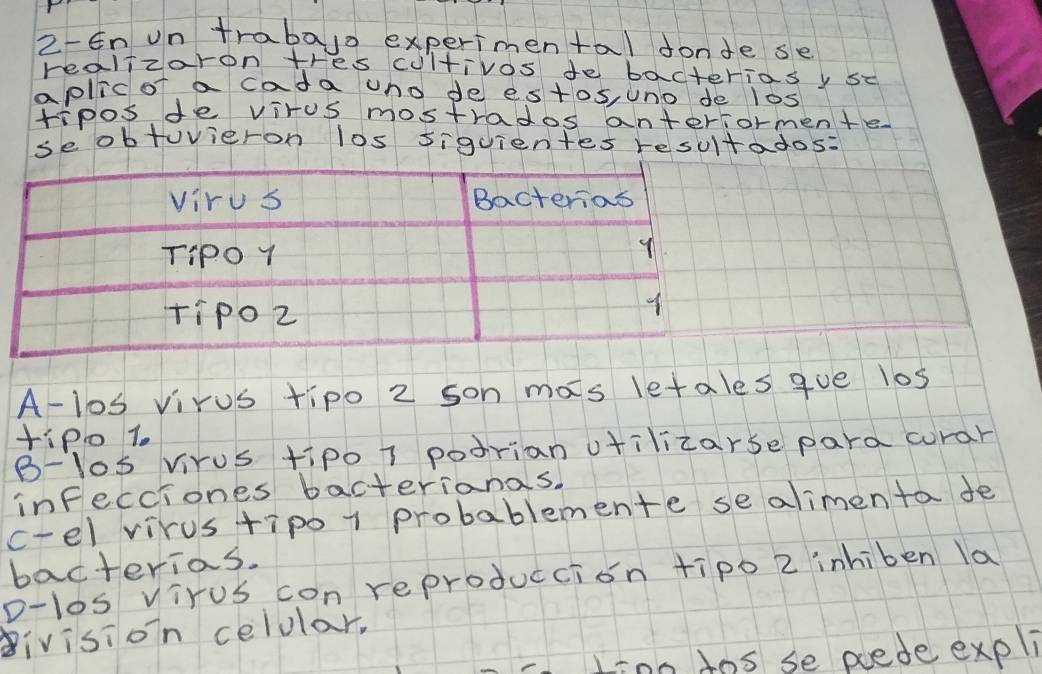 2-En un trabajo experimental donde se
realizaron tres cultivos de bacterias y se
aplicó a cada uno de estos, uno de los
tipos de virus mostrados anteriormente
se obtuvieron los siguientes resultados:
Virus Bacterias
Tipo 1 1
Tipo 2 1
A-los virus tipo 2 son más letales que los
tipo 1.
B-los virus tipo 1 podrian utilizarse para curar
infecciones bacterianas.
C-el virus tipo 1 probablemente se alimenta de
bacterias.
D-los virus con reproducción tipo 2 inhiben la
división celular.
tipo dos se puede expli